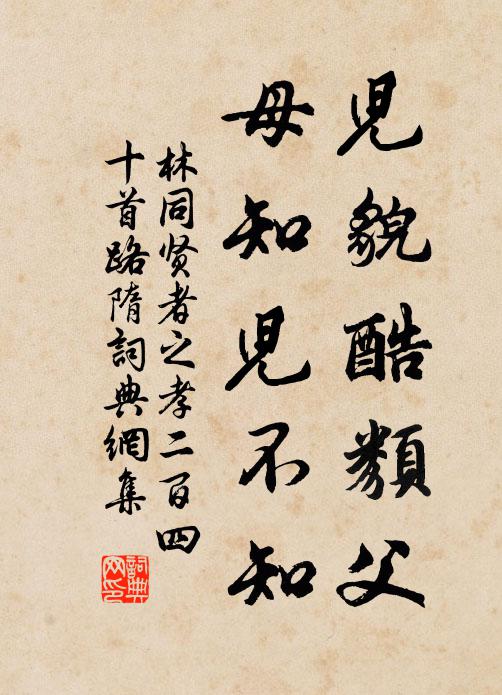 兒貌酷類父
母知兒不知
林同贤者之孝二百四
十首路隋詞典網集
詞典
网印